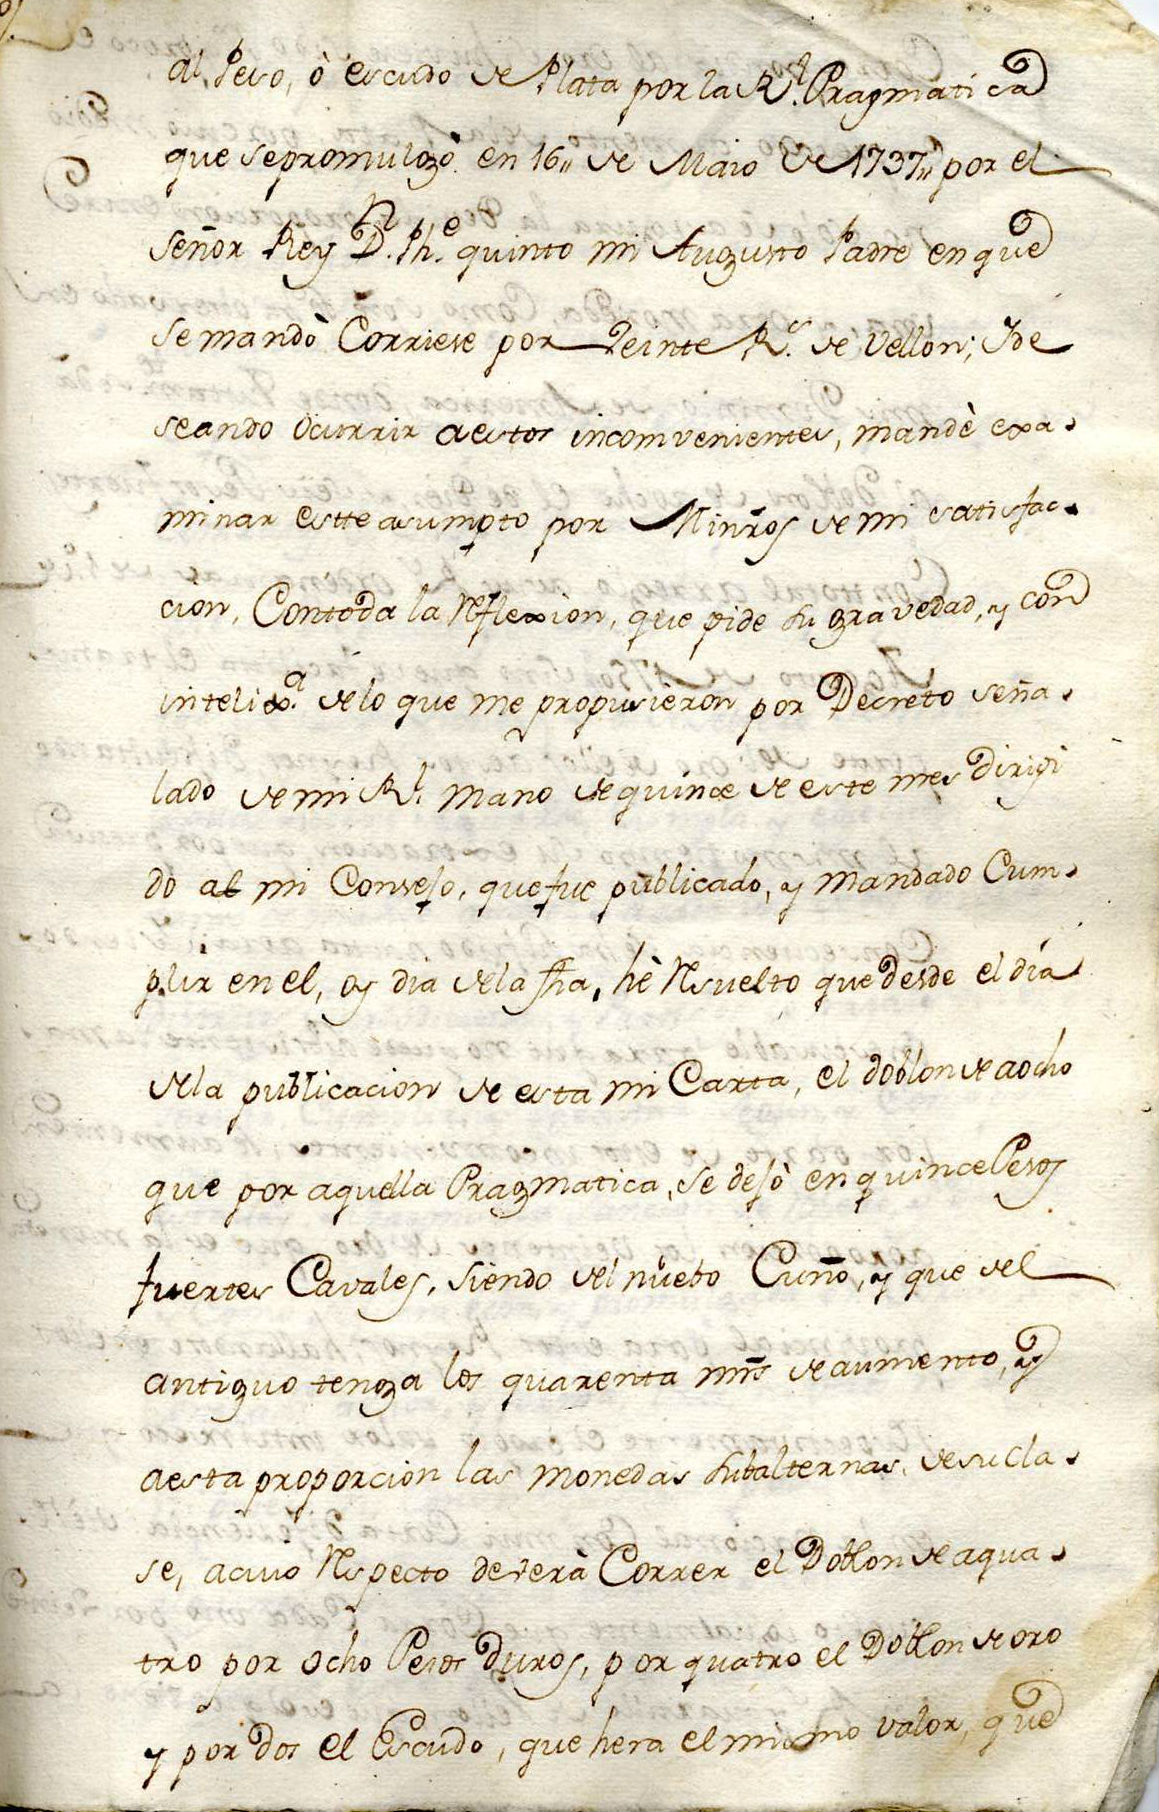 al Peso, ò escudo de Plata por la Rl. Pragmatica
que se promulgò en 16,, de Maio de 1737,, por el
señor Rey Dn. Phe. quinto mi Augusto Padre en que
se mandò Corriese por Veinte Rs. de Vellon; Y de
seando Ocurrir a estos incomvenientes, mandè exa-
minar estte asumpto por Minros de mi satisfac-
cion, Con toda la Reflexion, que pide su gravedad, y con
inteliga. de lo que me propusieron por Decreto seña-
lado de mi Rl. mano de quince de este mes dirigi
do al mi Consejo, que fue publicado, y mandado Cum-
plir en el, oy dia de la fha, hè Resuelto que desde el día
de la publicacion de esta mi Carta, el doblon de a ocho
que por aquella Pragmatica, se dejò en quince Pesos
fuertes Cavales, siendo del nuebo Cuño, y que del
antiguo tenga los quarenta mrs de aumento, y
a esta proporcion las monedas subalternas, de su cla-
se, a cuio Respecto deverà Correr el Doblon de a qua-
tro por ocho Pesos Duros, por quatro el Doblon de oro
y por dos el Escudo, que hera el mismo valor, que